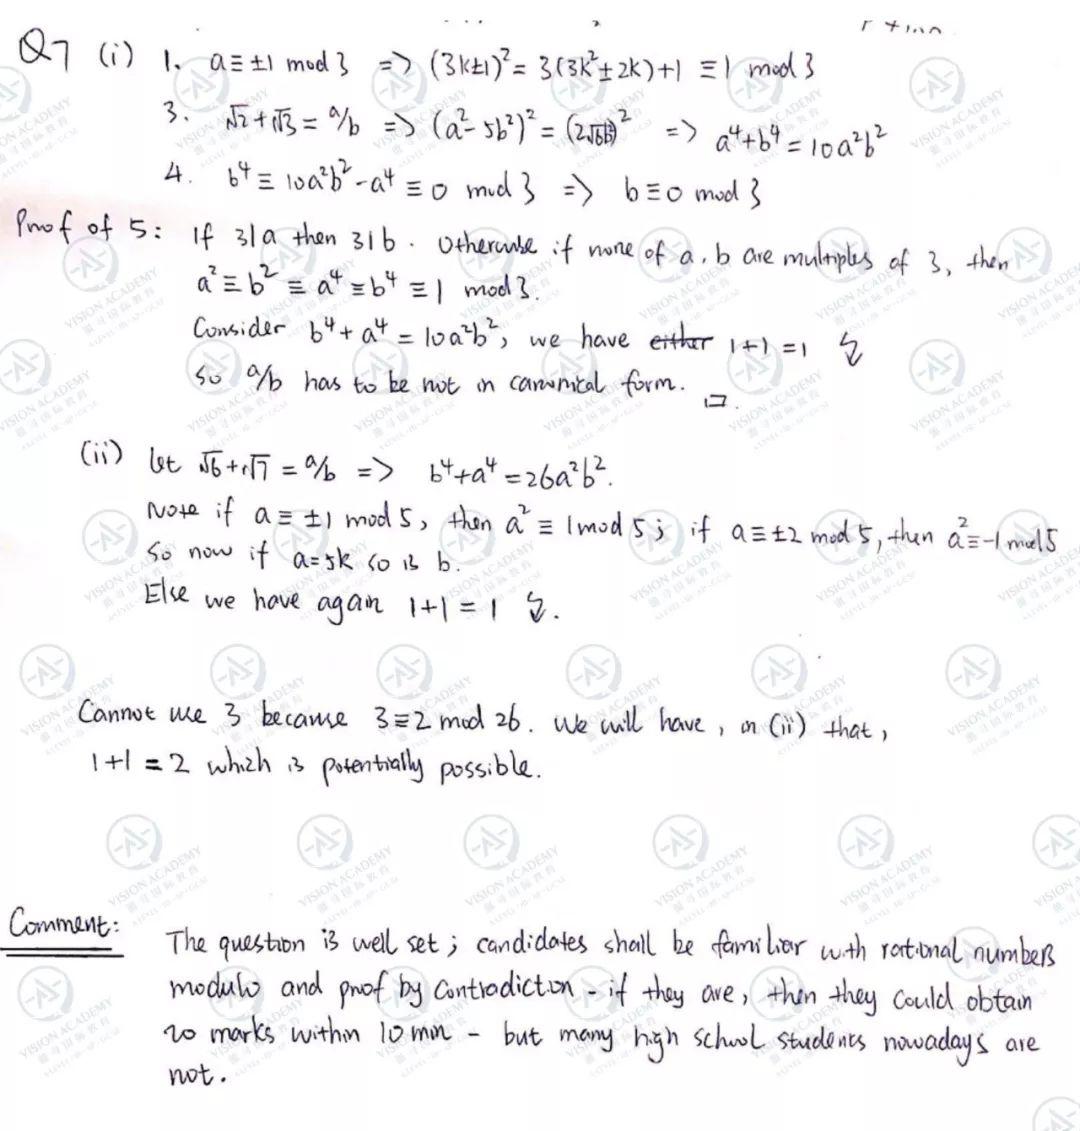 Q7 (i) 1. a ≡ ±1 mod 3 => (3k±1)² = 3(3k²±2k)+1 ≡ 1 mod 3
3. √2+√3 = a/b => (a²-5b²)² = (2√6b²)² => a⁴+b⁴ = 10a²b²
4. b⁴ ≡ 10a²b²-a⁴ ≡ 0 mod 3 => b≡0 mod 3
Proof of 5: If 3|a then 3|b. Otherwise if none of a, b are multiples of 3, then
a² ≡ b² ≡ a⁴ ≡ b⁴ ≡ 1 mod 3.
Consider b⁴+a⁴ = 10a²b², we have either 1+1=1 ↯
So a/b has to be not in canonical form. □.
(ii) let √6+√7 = a/b => b⁴+a⁴ = 26a²b².
Note if a ≡ ±1 mod 5, then a² ≡ 1 mod 5; if a≡±2 mod 5, then a²≡-1 mod 5
So now if a=5k so is b.
Else we have again 1+1=1 ↯.
Cannot use 3 because 3≡2 mod 26. We will have, in (ii) that,
1+1=2 which is potentially possible.
Comment: The question is well set; candidates shall be familiar with rational numbers
modulo and proof by contradiction - if they are, then they could obtain
20 marks within 10 min - but many high school students nowadays are
not.
VISION ACADEMY